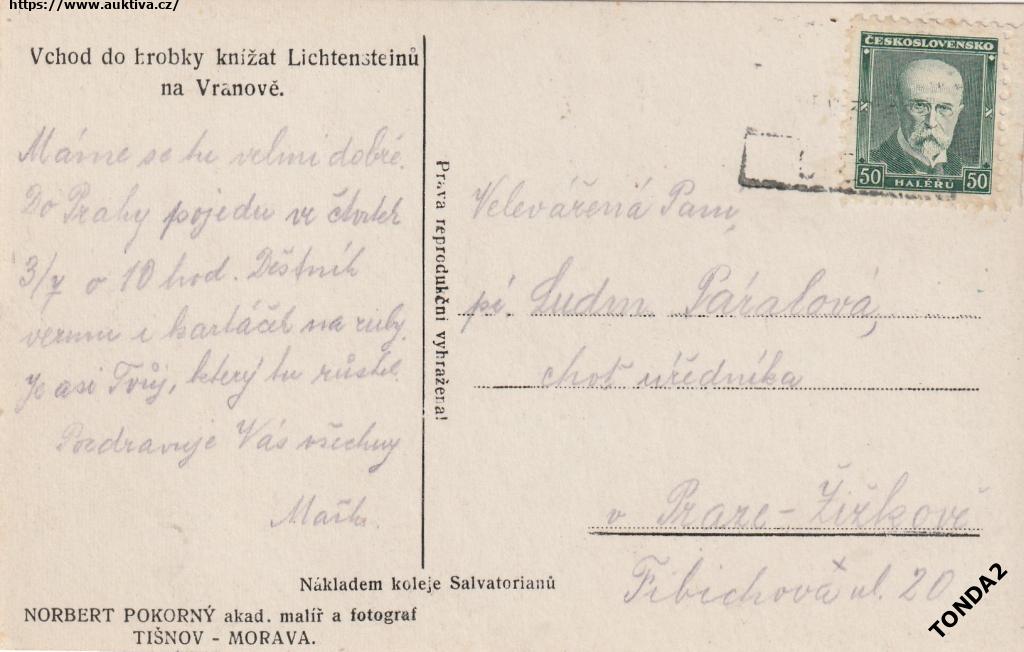 https://www.auktiva.cz/
Vchod do hrobky knížat Lichtensteinů
na Vranově.
Máme se tu velmi dobře.
Do Prahy pojedu ve čtvrtek
3/7 o 10 hod. Deštník
vezmu i kartáček na zuby.
Je asi Tvůj, který tu zůstal.
Pozdravuje Vás všechny
Práva reprodukční vyhražena!
ČESKOSLOVENSKO
50 HALÉŘŮ 50
Velevážená Paní,
pí. Ludm. Páralová,
choť úředníka
v Praze-Žižkově
Fibichova ul. 20
Nákladem koleje Salvatorianů
NORBERT POKORNÝ akad. malíř a fotograf
TIŠNOV - MORAVA.
TONDA2